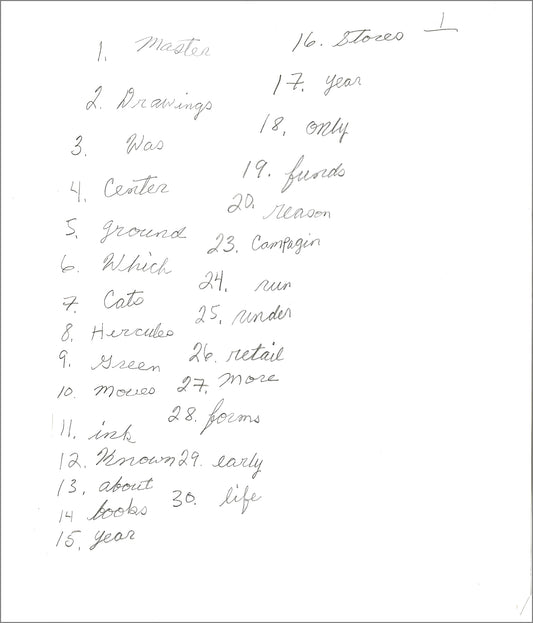 1
1. Master
2. Drawings
3. Was
4. Center
5. ground
6. Which
7. Cats
8. Hercules
9. Green
10. Movies
11. ink
12. Known
13. about
14 books
15. year
16. Stores
17. year
18. only
19. funds
20. reason
23. Campagin
24. run
25. under
26. retail
27. More
28. forms
29. early
30. life